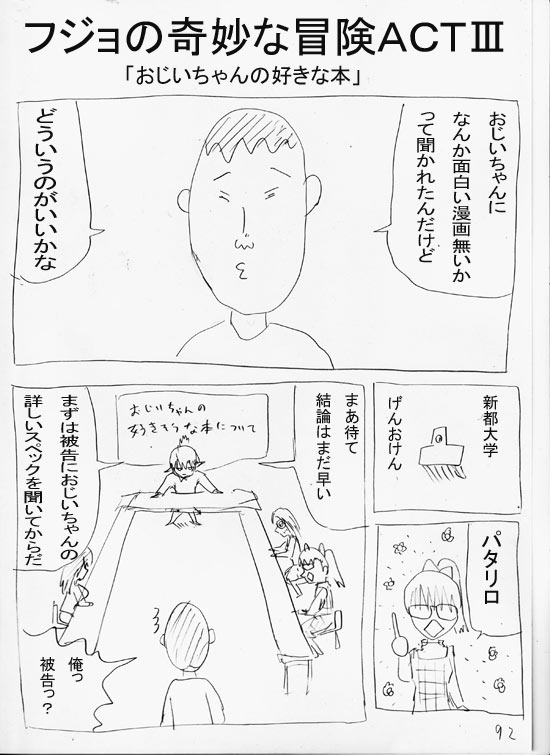 フジョの奇妙な冒険ACTⅢ
「おじいちゃんの好きな本」
おじいちゃんに
なんか面白い漫画無いか
って聞かれたんだけど
どういうのがいいかな
新都大学
げんおけん
パタリロ
まあ待て
結論はまだ早い
おじいちゃんの
好きそうな本について
まずは被告におじいちゃんの
詳しいスペックを聞いてからだ
俺っ
被告っ？
92